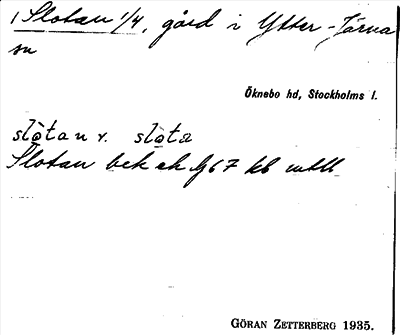 1 Slotan 1/4, gård i Ytter-Järna
sn
Öknebo hd, Stockholms l.
slò̀tan v. slò̀ta
Slotan bek ek
GÖRAN ZETTERBERG 1935.